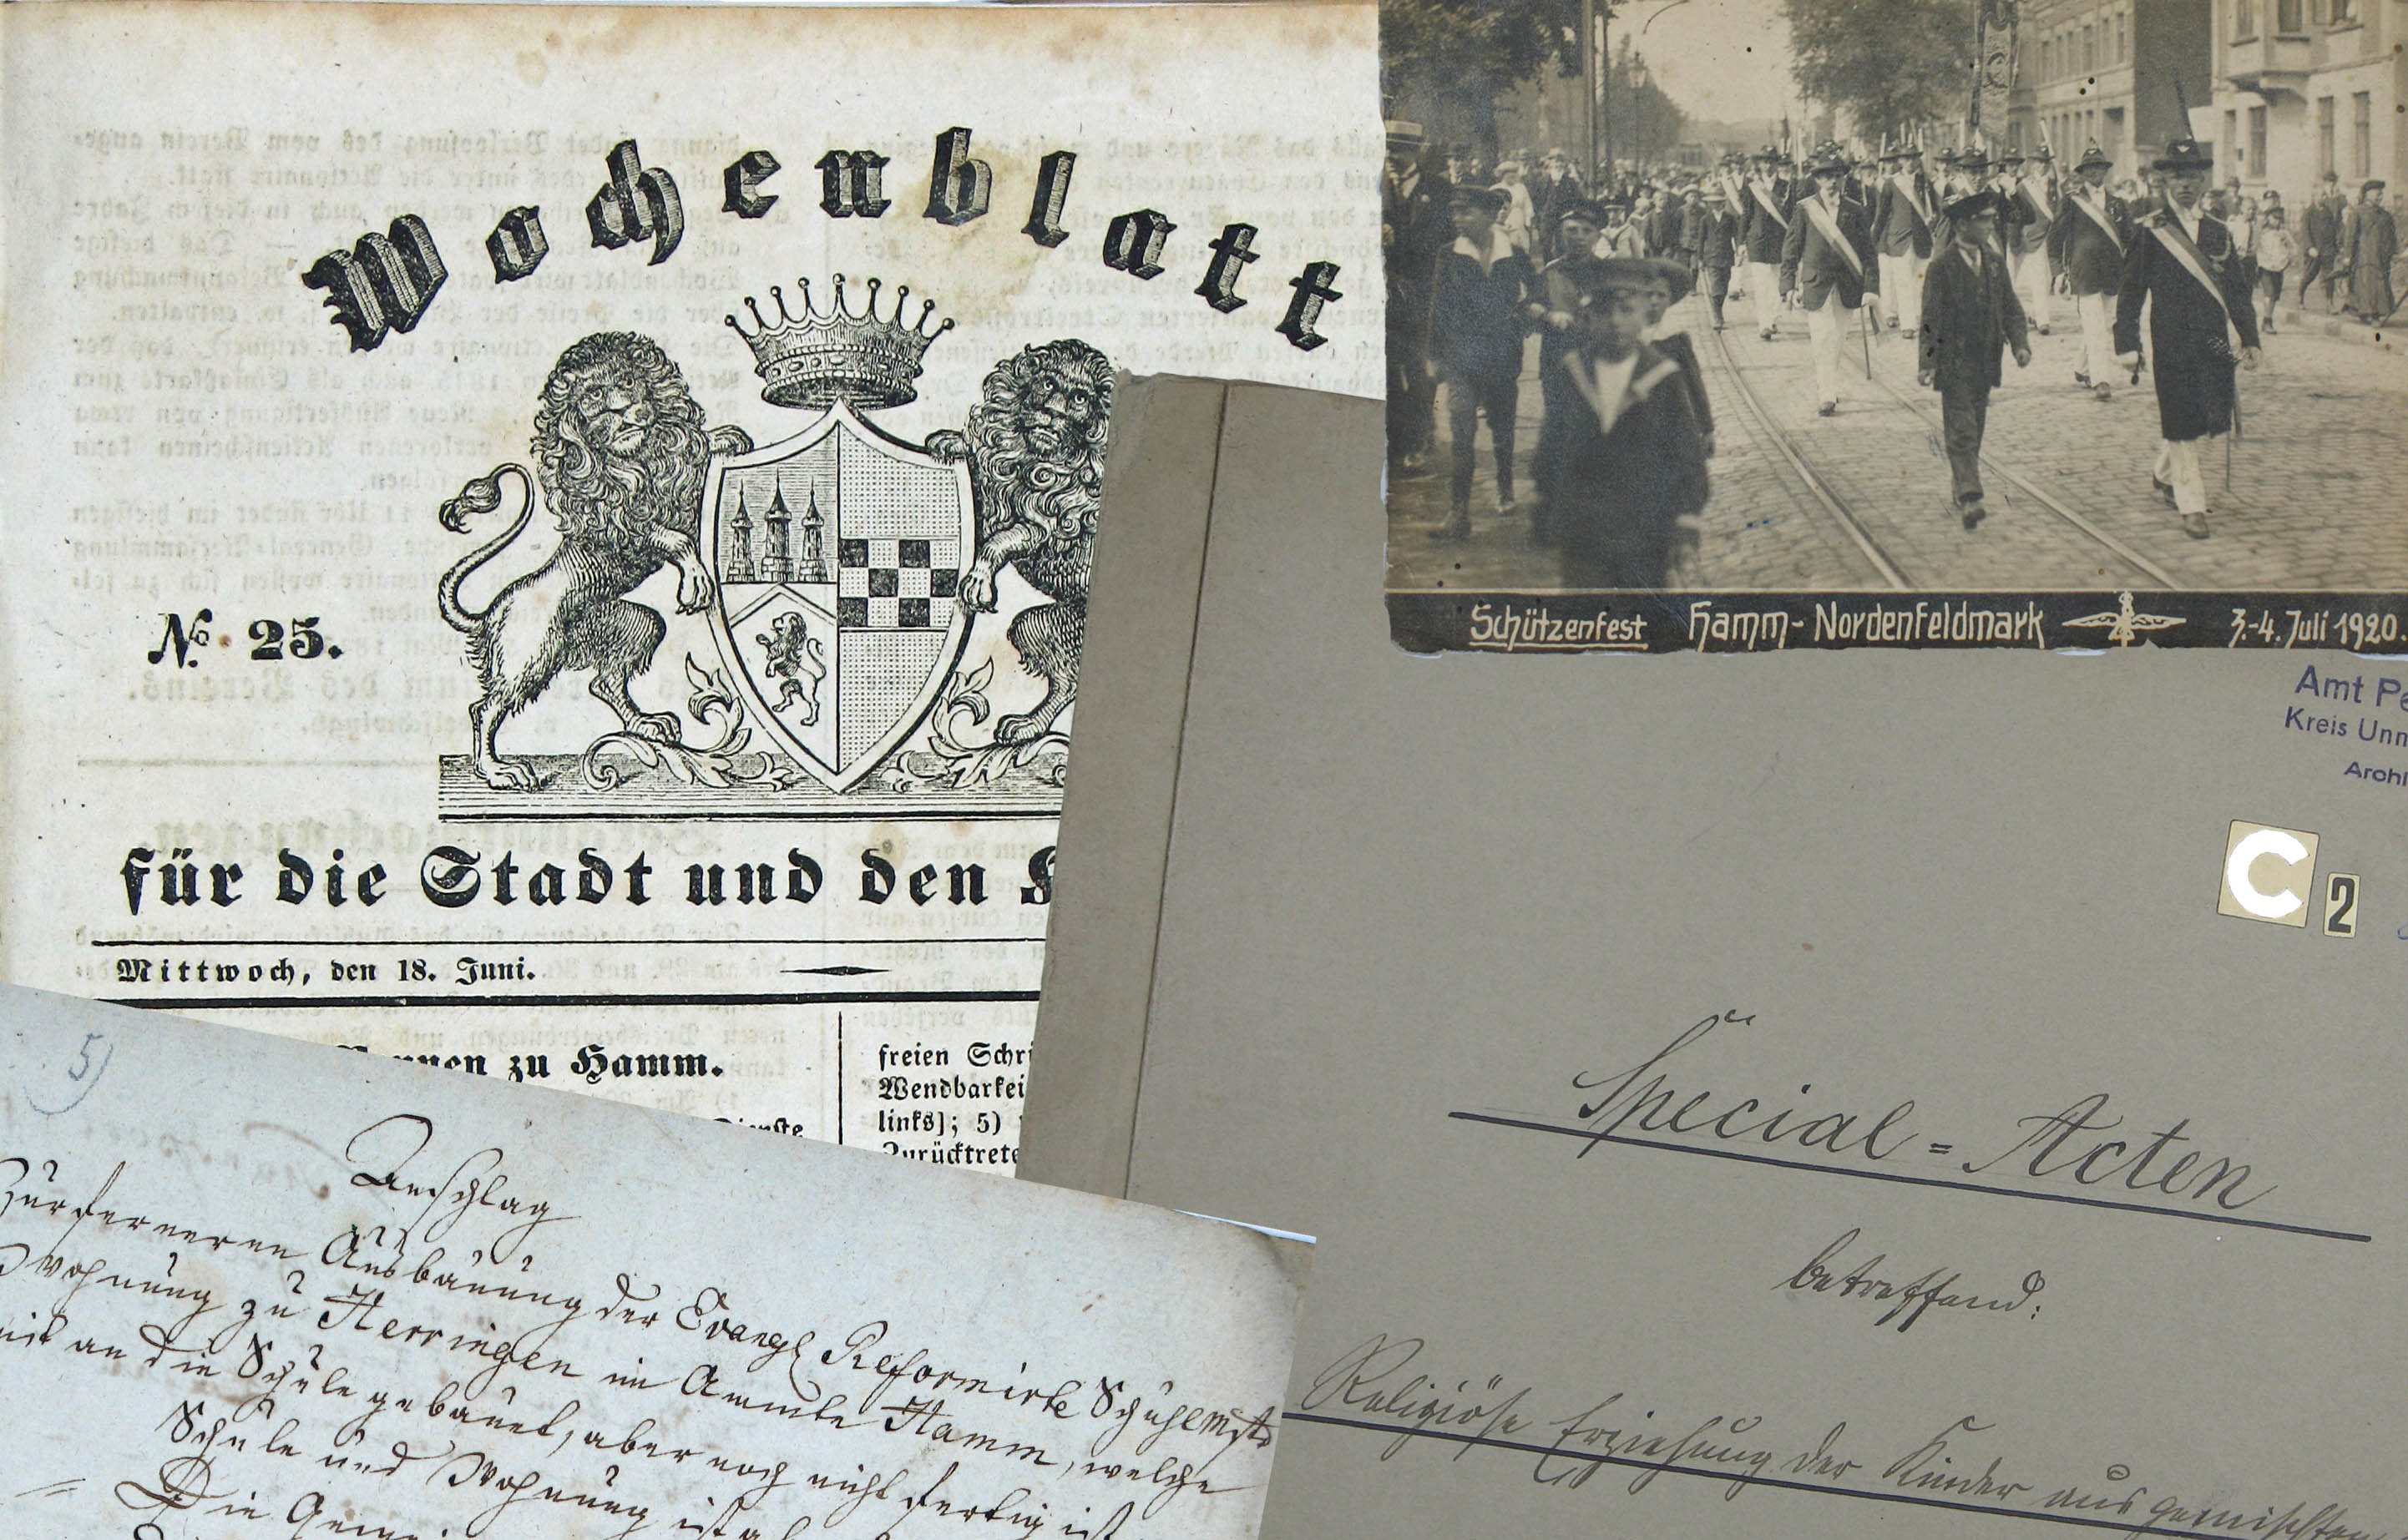 Wochenblatt
No. 25.
für die Stadt und den
Mittwoch, den 18. Juni.
zu Hamm.
Dienste
freien
links]; 5)
Schützenfest Hamm-Nordenfeldmark 3.-4. Juli 1920.
Amt
Kreis
C 2
Special=Acten
betreffend:
Religiöse Erziehung der Kinder aus gemischten
5)
Anschlag
Zur ferneren Ausbauung der Evangl Reformirte
Wohnung zu Herringen im Ammte Hamm, welche
an die Schule gebauet, aber noch nicht fertig ist
Schule und Wohnung ist
Die